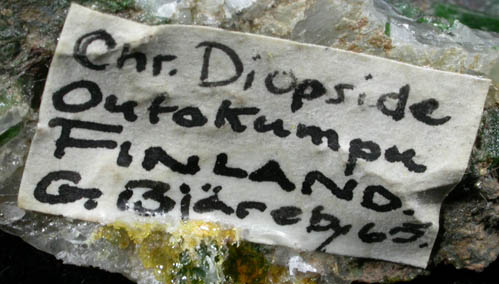 Chr. Diopside
Outokumpu
FINLAND.
G. Bjäreby 65.